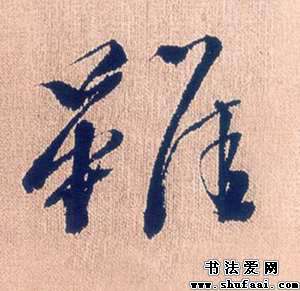 難
书法爱网
www.shufaai.com